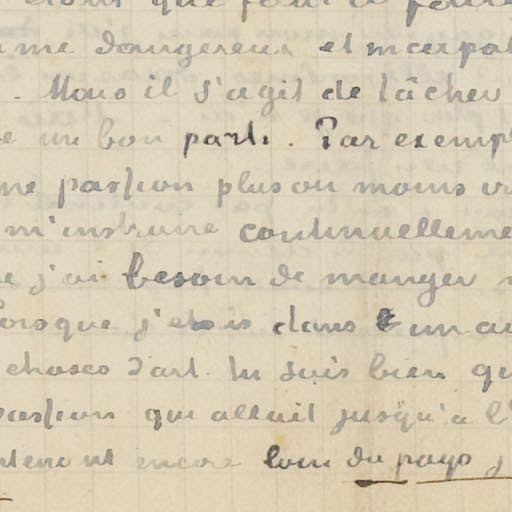 dons que faut il faire
me dangereux et incapab
. Mais il s'agit de tâcher
un bon parti. Par exemp
ne passion plus ou moins ir
m'instruire continuelleme
j'ai besoin de manger
lorsque j'étais dans un au
choses d'art. tu sais bien qu
passion qui allait jusqu'à l'
ntenant encore loin du pays j